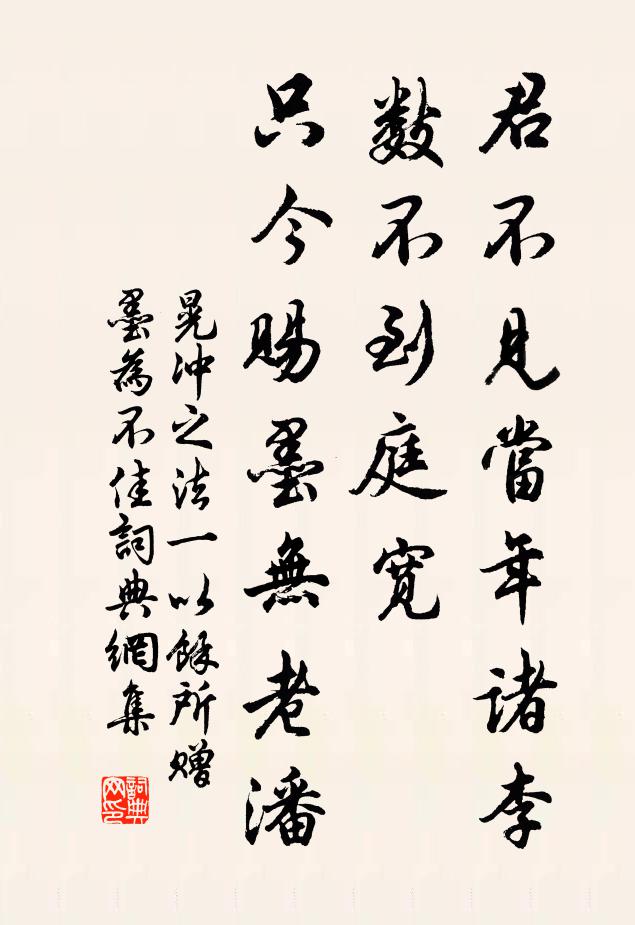 君不見當年諸李
數不到庭寬
只今賜墨無老潘
晁冲之法一以餘所贈
墨為不佳詞典網集
詞典網印